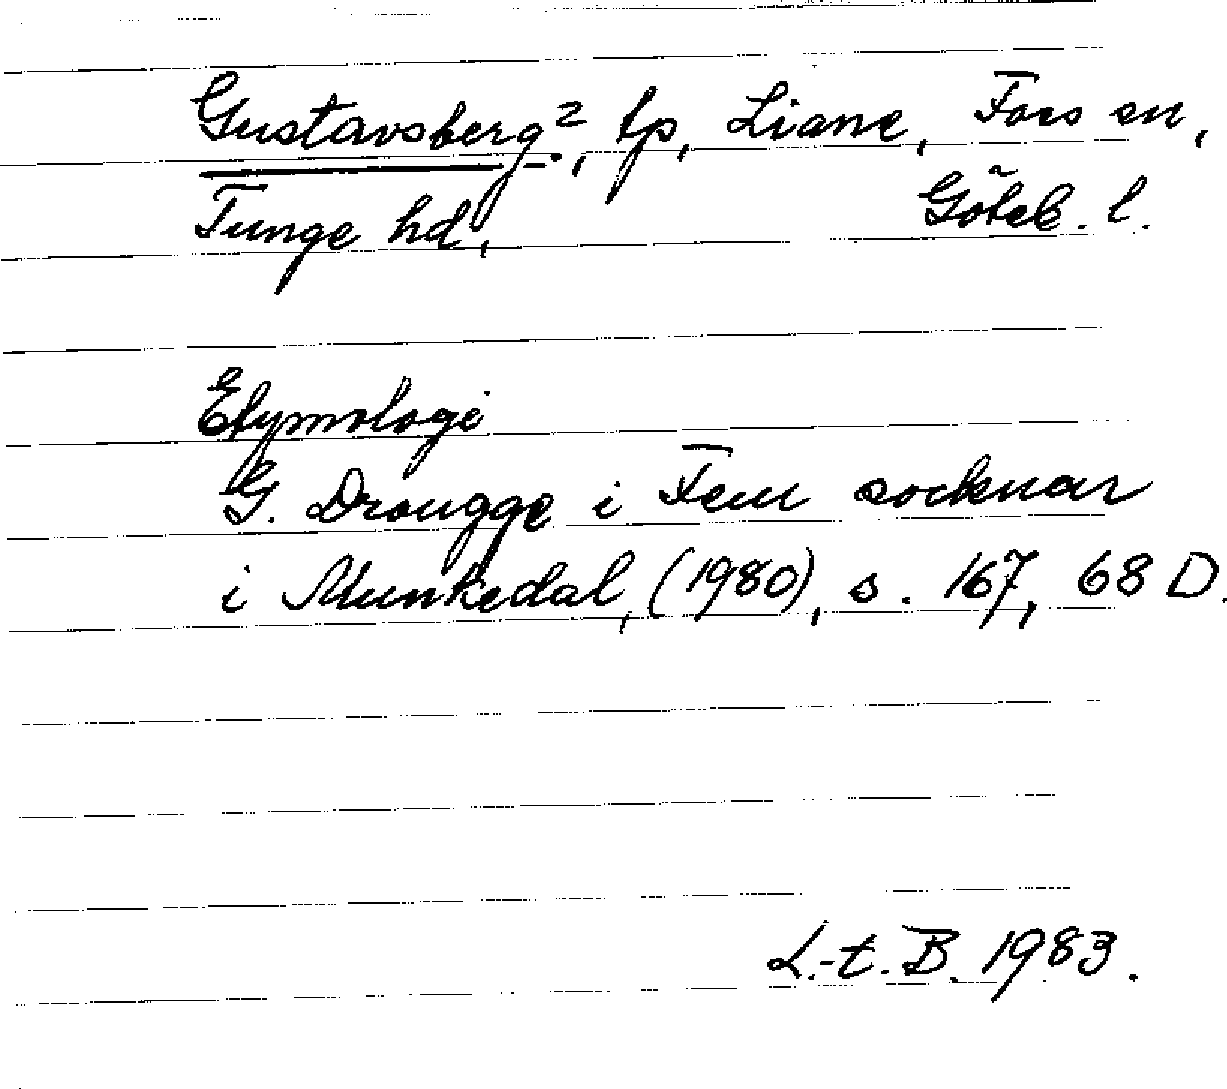 Gustavsberg², tp, Liane, Foss sn,
Tunge hd, Göteb. l.
Etymologi
G. Drougge i Fem socknar
i Munkedal, (1980), s. 167, 68 D.
L.-t. B. 1983.